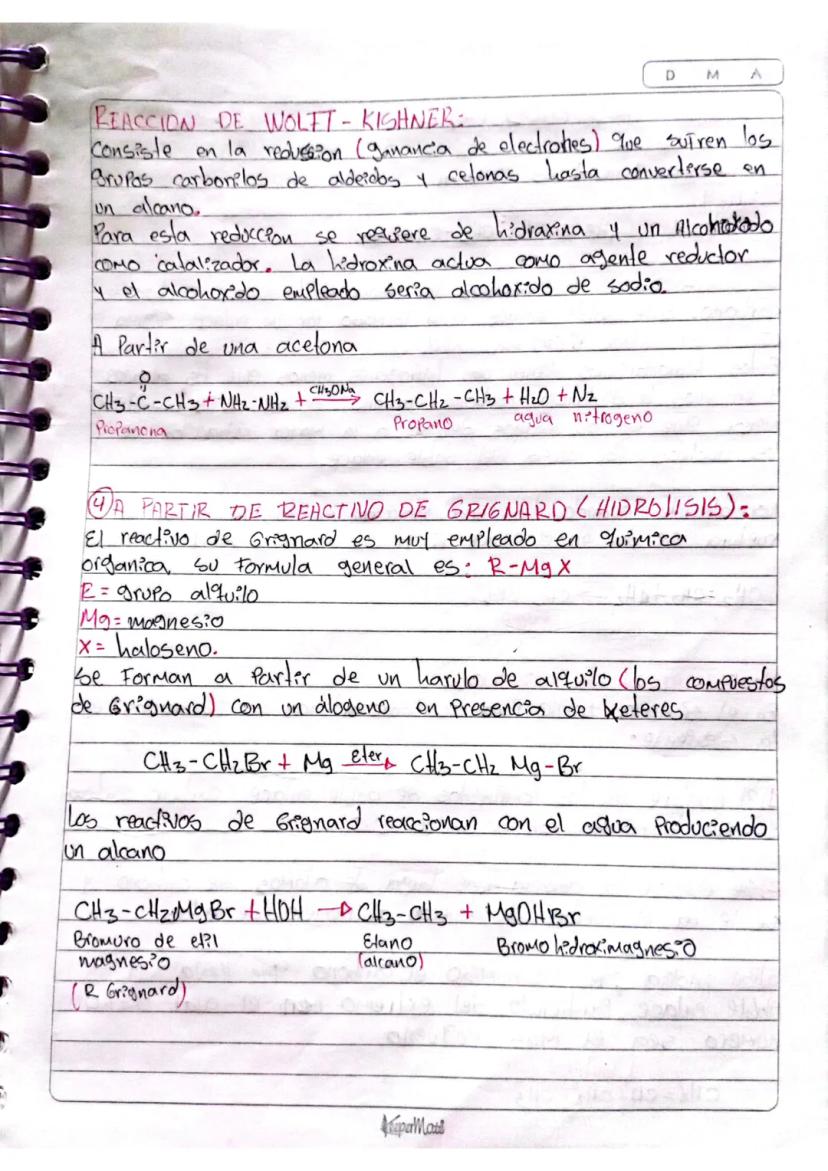 D M A
REACCION DE WOLFF-KISHNER:
Consiste en la reducsion (ganancia de electrones) que sufren los
grupos carbonilos de aldeidos y cetonas hasta convertirse en
un alcano.
Para esta reduccion se requiere de hidraxina y un Alcohoxido
como catalizador. La hidroxina actua como agente reductor
y el alcohoxido empleado seria alcohoxido de sodio.
A Partir de una acetona
O
CH3-C-CH3 + NH2-NH2 + CH3ONa → CH3-CH2-CH3 + H2O + N2
Propanona Propano agua nitrogeno
④ A PARTIR DE REACTIVO DE GRIGNARD (HIDROLISIS):
El reactivo de Grignard es muy empleado en quimica
organica, su formula general es: R-MgX
R = grupo alquilo
Mg = magnesio
X = haloseno.
Se Forman a Partir de un harulo de alquilo (los compuestos
de Grignard) con un álogeno en Presencia de eteres
CH3-CH2Br + Mg Eter → CH3-CH2 Mg-Br
Los reactivos de Grignard reaccionan con el agua Produciendo
un alcano
CH3-CH2MgBr + HOH → CH3-CH3 + MgOHBr
Bromuro de etil Etano Bromo hidroximagnesio
magnesio (alcano)
(R Grignard)
KeeperMate